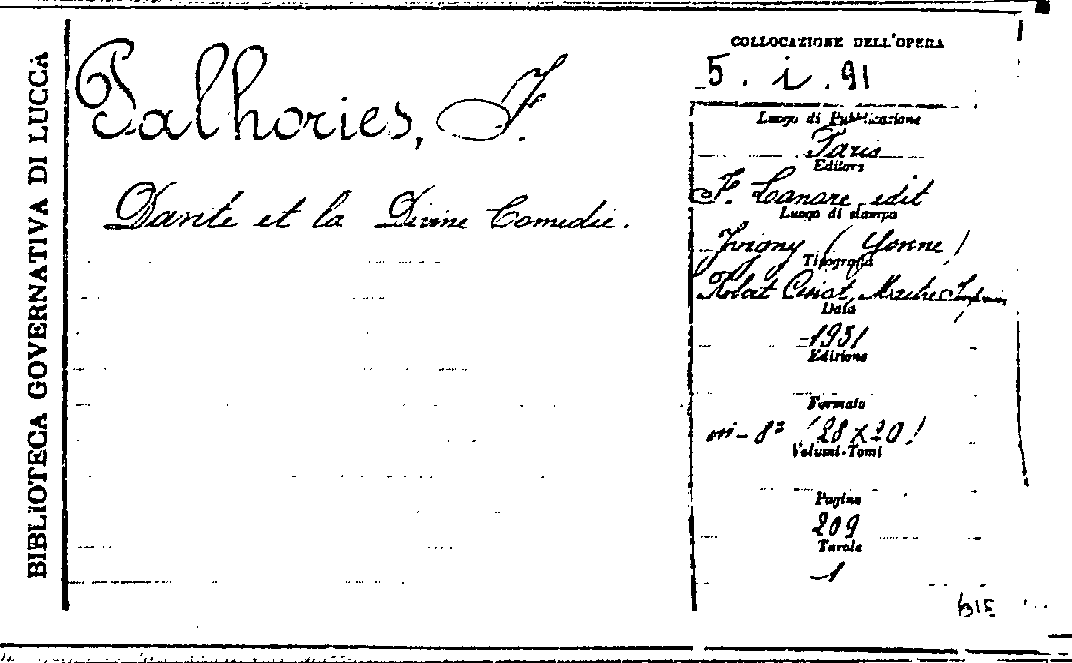 BIBLIOTECA GOVERNATIVA DI LUCCA
Palhories, F.
Dante et la Divine Comedie.
COLLOCAZIONE DELL'OPERA
5. i. 91
Luogo di Pubblicazione
Paris
Editore
F. Lanore edit
Luogo di stampa
Joigny (Yonne)
Tipografia
Data
1951
Edizione
Formato
in-8° (28x20)
Volumi-Tomi
Pagine
209
Tavole
1